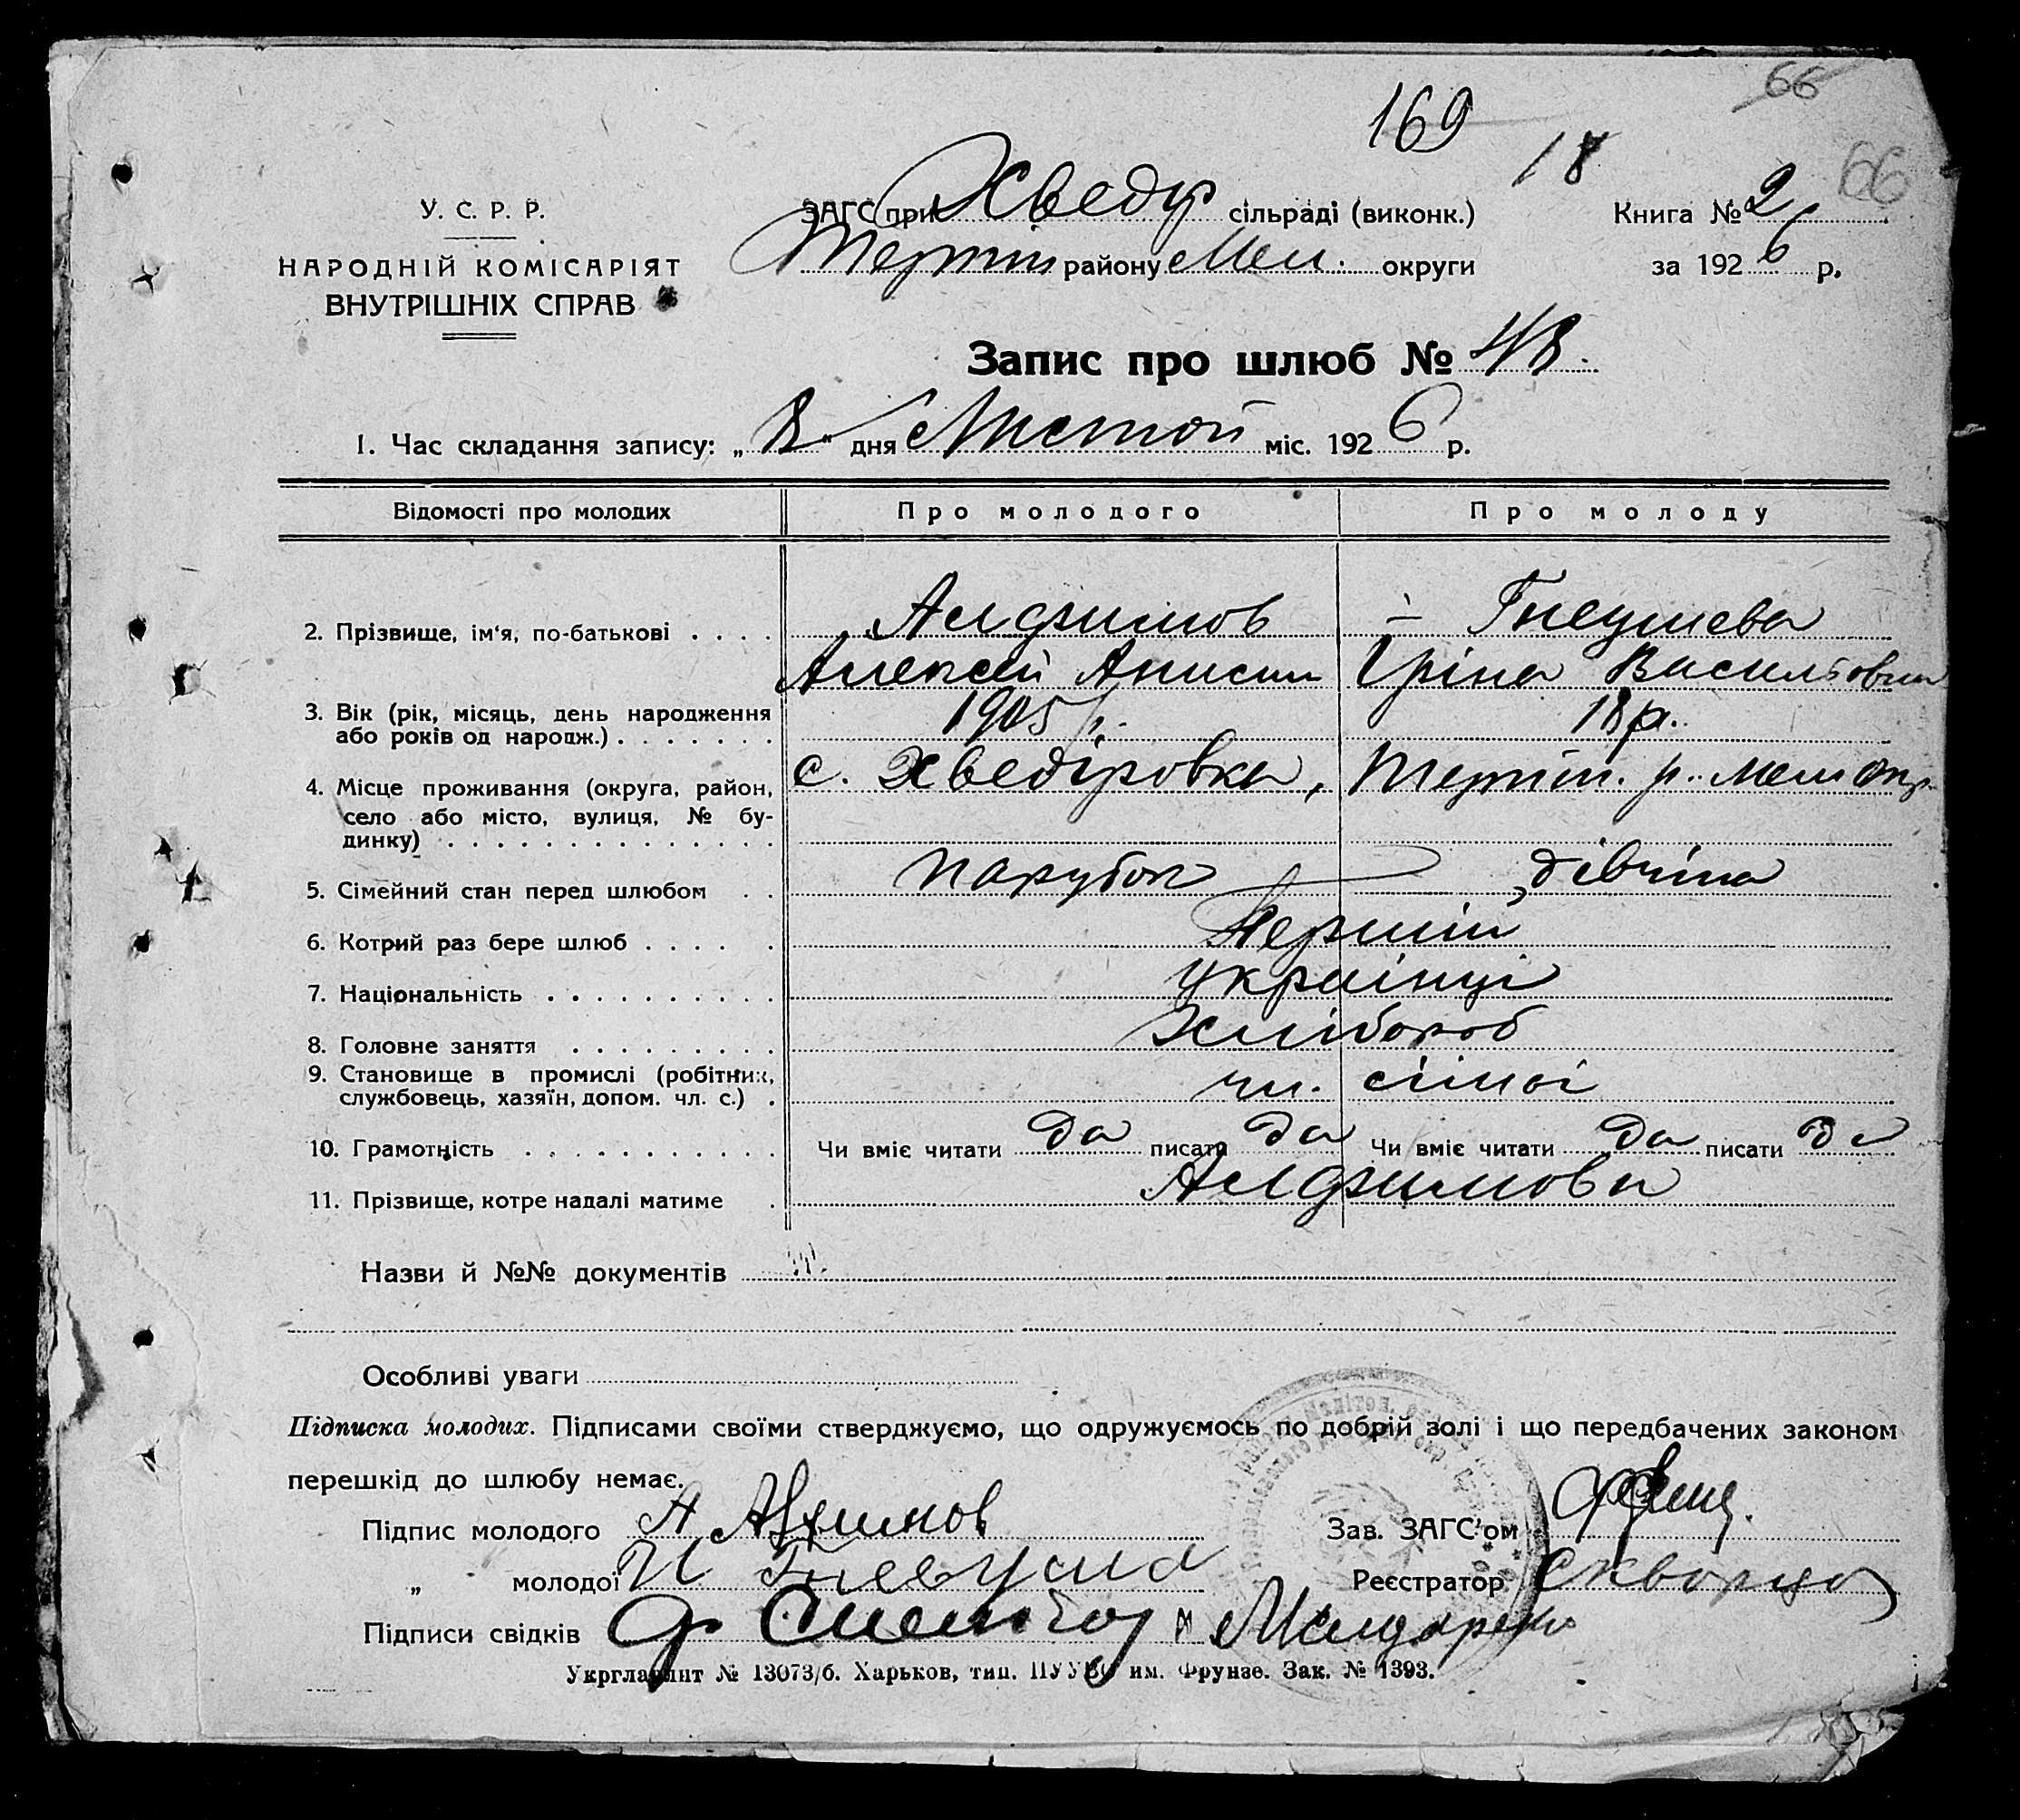 66
169
18
66
У. С. Р. Р.
НАРОДНІЙ КОМІСАРІЯТ
ВНУТРІШНІХ СПРАВ
ЗАГС при Хведр сільраді (виконк.)
Терпін району Мел. округи
Книга № 2
за 1926 р.
Запис про шлюб № 48.
1. Час складання запису: „8" дня Листоп міс. 1926 р.
Відомості про молодих Про молодого Про молоду
2. Прізвище, ім'я, по-батькові . . . . Алфимов Гнеушева
Алексей Анисим Іріна Васильовна
3. Вік (рік, місяць, день народження
або років од народж.) . . . . . . . 1905 р. 18 р.
4. Місце проживання (округа, район, с. Хведіровка, Терпін. р. Мел Окр
село або місто, вулиця, № бу-
динку) . . . . . . . . . . . . . .
5. Сімейний стан перед шлюбом . . парубок дівчіна
6. Котрий раз бере шлюб . . . . . Перший
7. Національність . . . . . . . . . . українці
8. Головне заняття . . . . . . . . . Хлібороб
9. Становище в промислі (робітник,
службовець, хазяїн, допом. чл. с.) . чл. сімьі
10. Грамотність . . . . . . . . . . . Чи вміє читати да писати да Чи вміє читати да писати да
11. Прізвище, котре надалі матиме . Алфимовы
Назви й №№ документів
Особливі уваги
Підписка молодих. Підписами своїми стверджуємо, що одружуємось по добрій волі і що передбачених законом
перешкід до шлюбу немає.
Підпис молодого А Алфимов Зав. ЗАГС'ом
„ молодої И Гнеуша Реєстратор Скворцов
Підписи свідків
Укрглавліт № 13073/б. Харьков, тип. ПУУВО им. Фрунзе. Зак. № 1393.